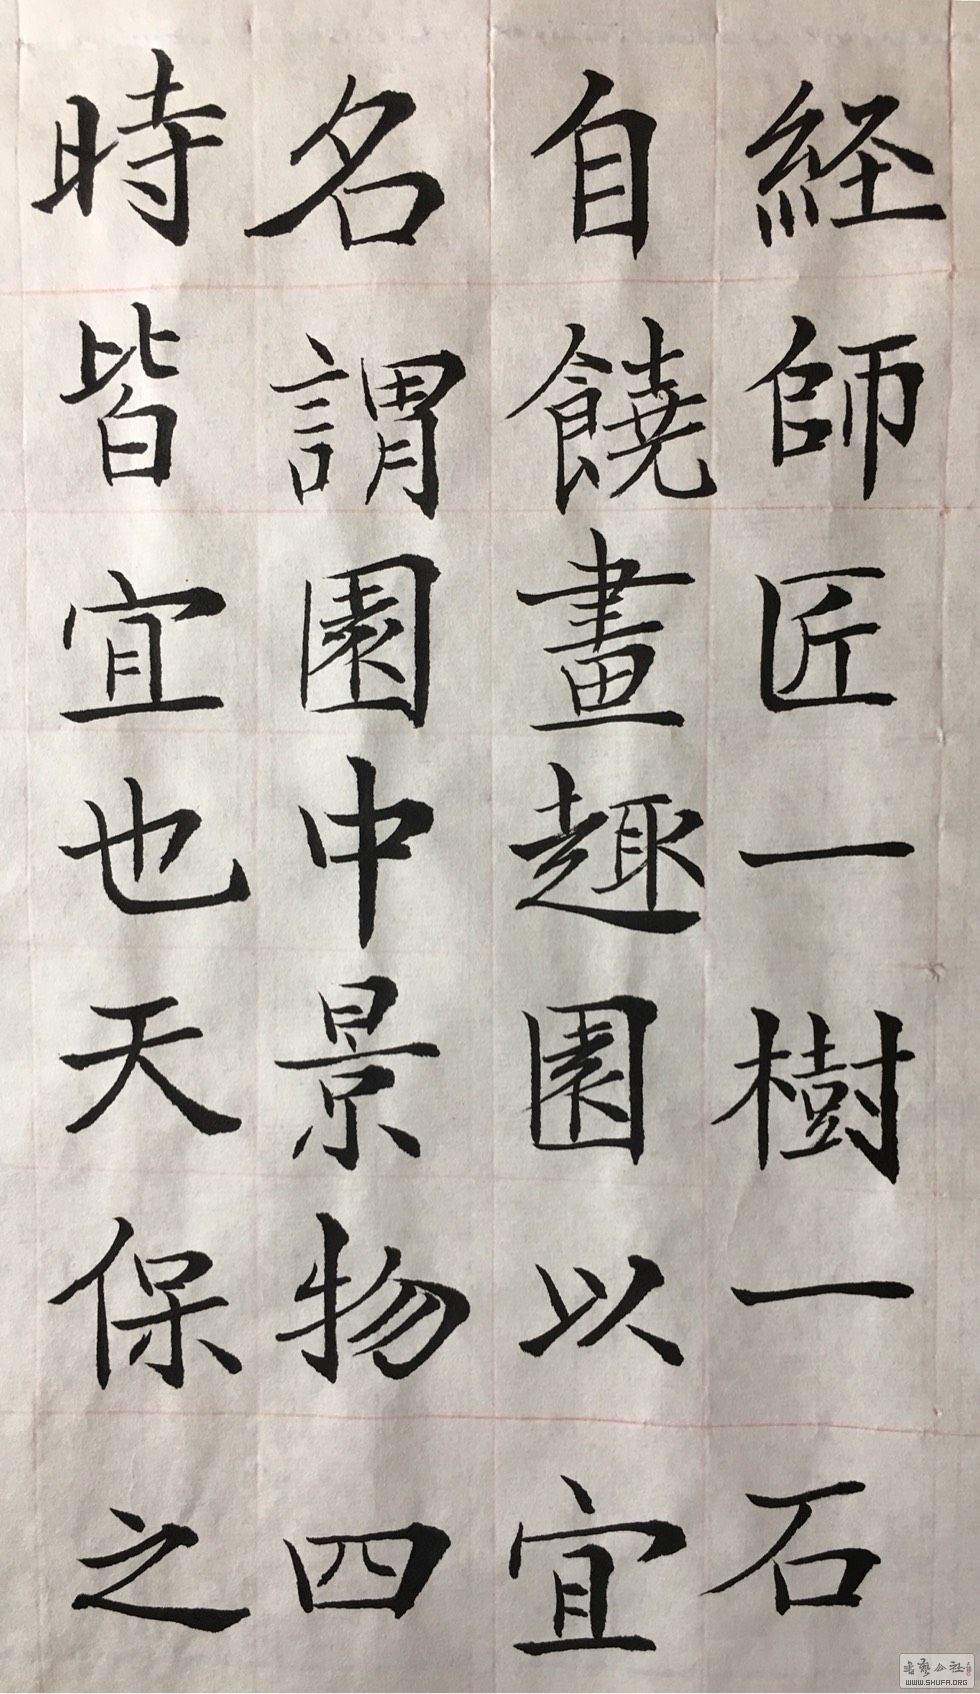 経師匠一樹一石
自饒畫趣園以宜
名謂園中景物四
時皆宜也天保之
書藝公社
WWW.SHUFA.ORG